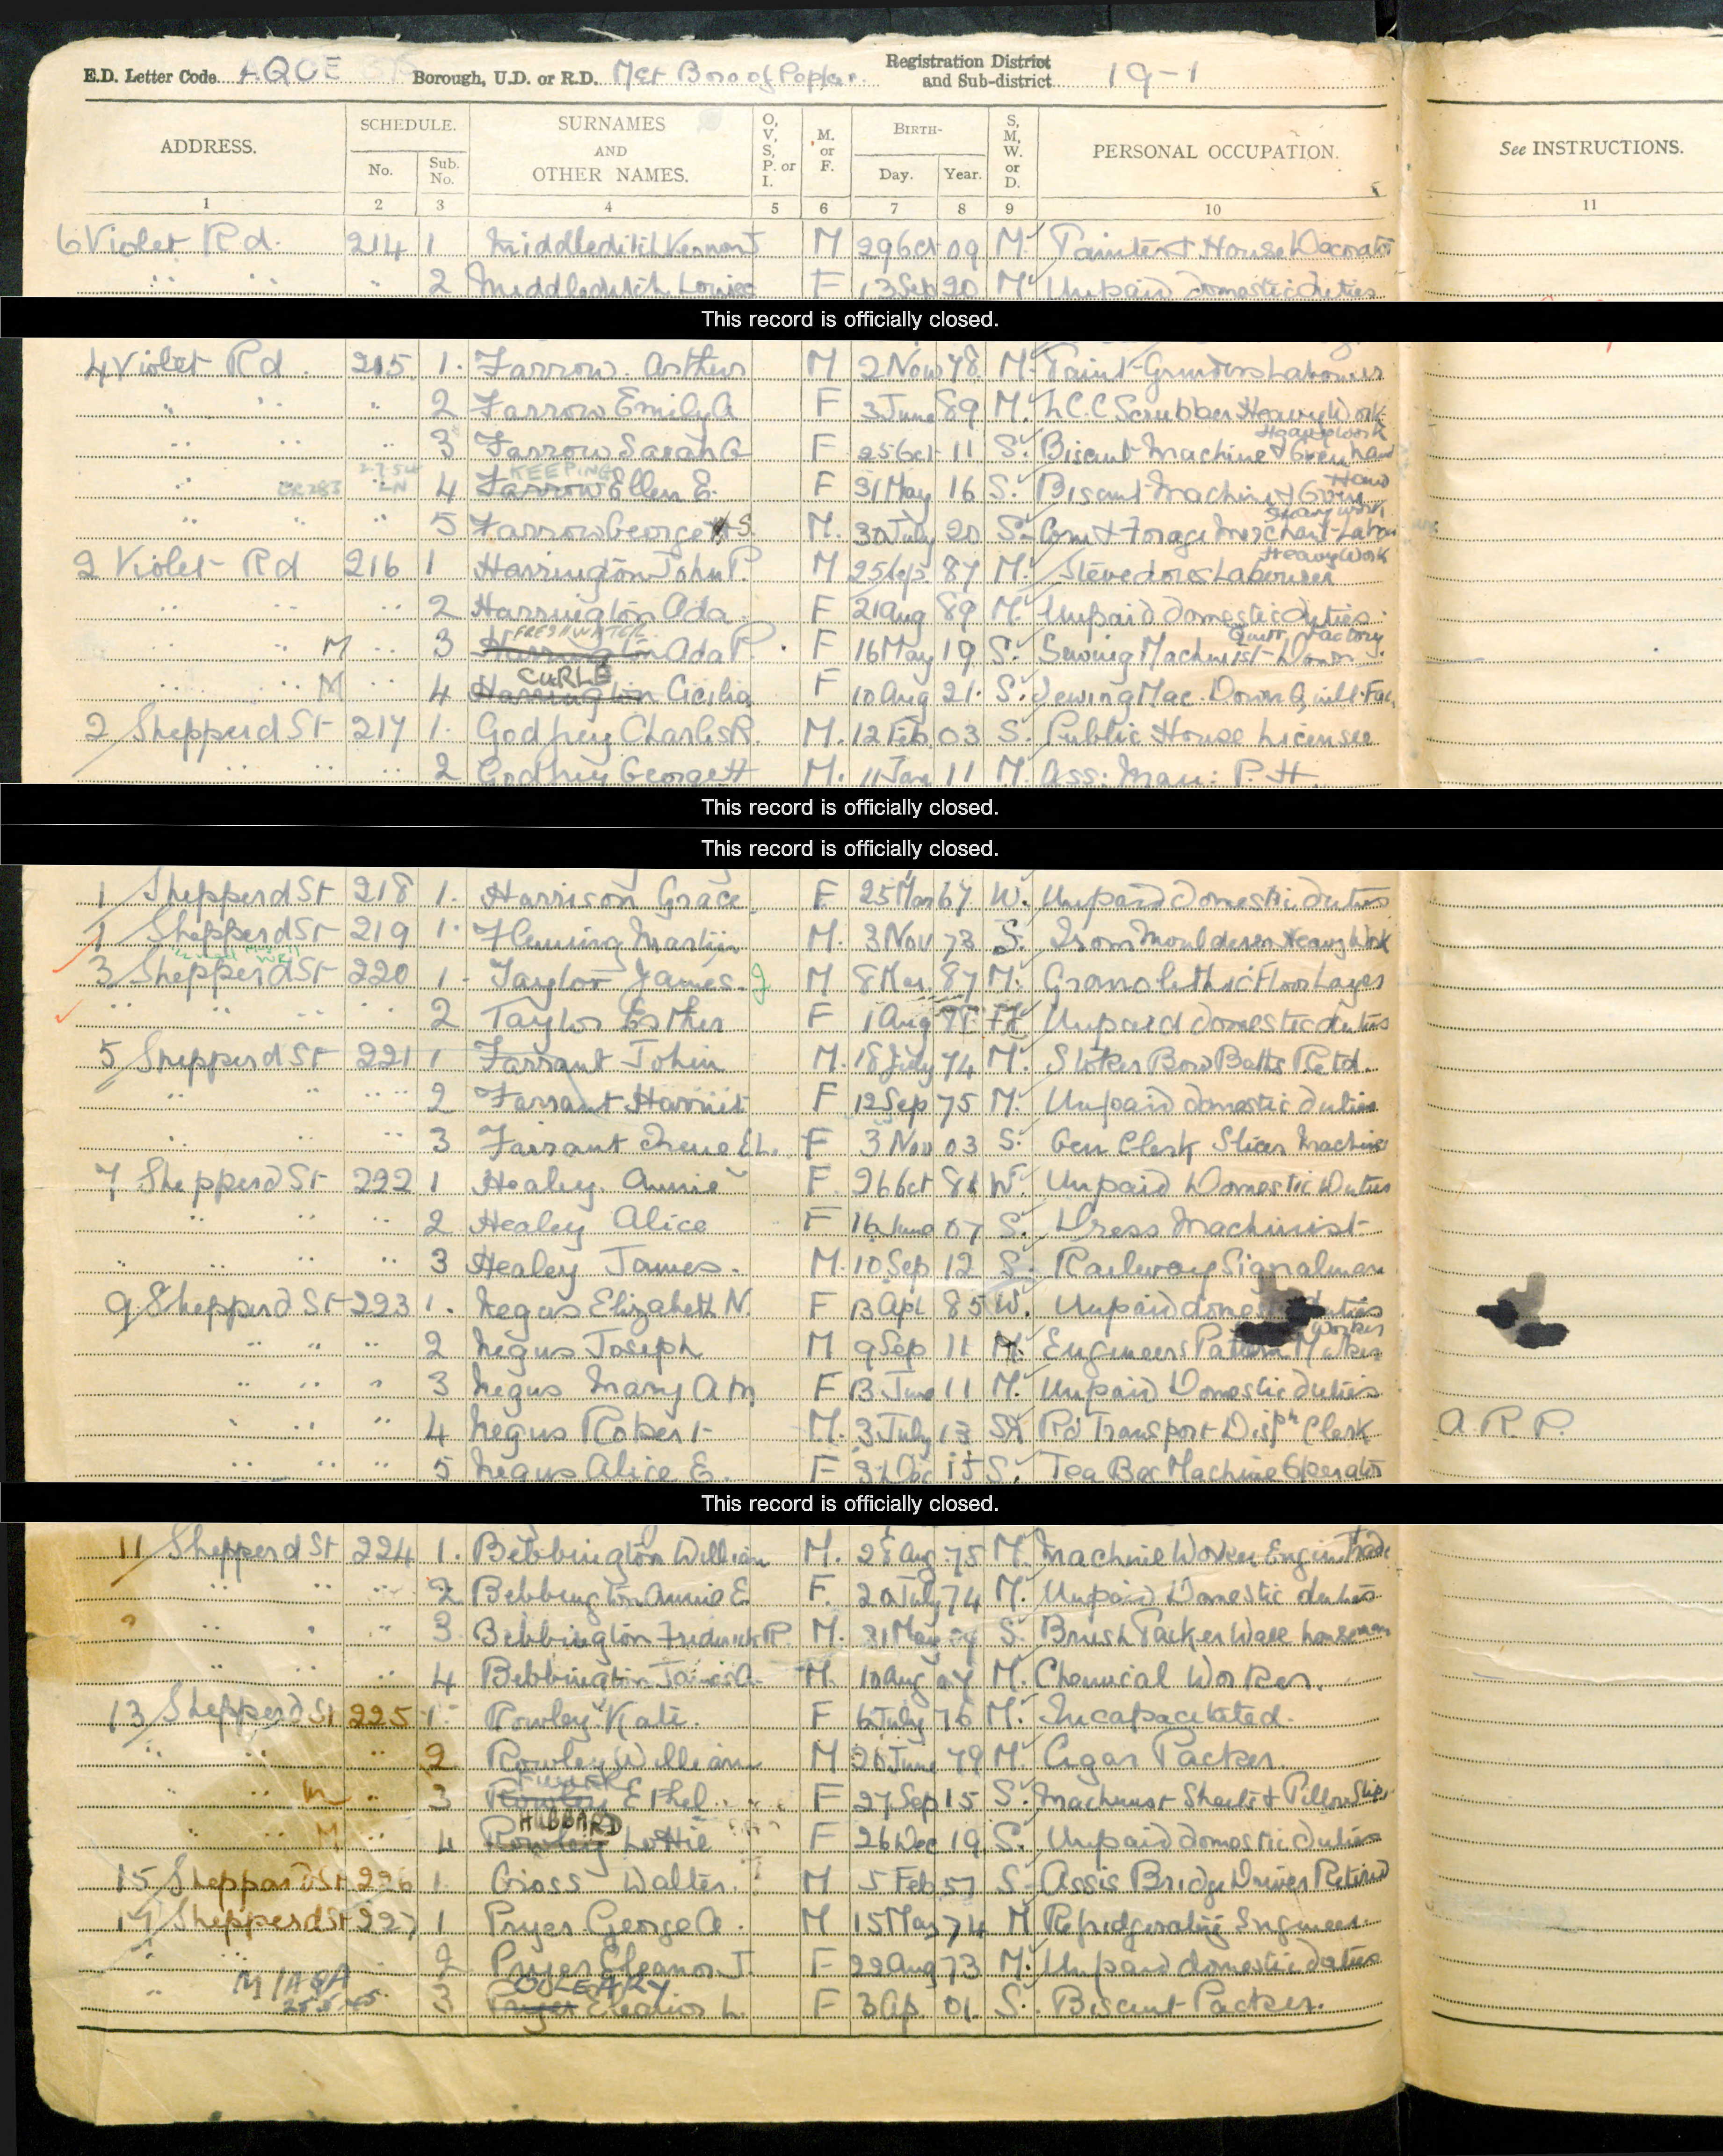 E.D. Letter Code AQOE Borough, U.D. or R.D. Met Boro of Poplar. Registration District and Sub-district 19-1
ADDRESS. SCHEDULE. No. Sub. No. SURNAMES AND OTHER NAMES. O, V, S, P. or I. M. or F. BIRTH- Day. Year. S, M, W. or D. PERSONAL OCCUPATION. See INSTRUCTIONS.
1 2 3 4 5 6 7 8 9 10 11
6 Violet Rd. 214 1 Middleditch Vernon J M 29 Oct 09 M. Painter & House Decorator
" " " 2 Middleditch Louisa F 13 Sep 20 M Unpaid domestic duties
This record is officially closed.
4 Violet Rd. 215 1. Farrow. Arthur M 2 Nov 78 M. Paint Grinders Labourer
" " " 2 Farrow Emily A F 3 June 89 M. L.C.C Scrubber Heavy Work
" " " 3 Farrow Sarah A F 25 Oct 11 S. Biscuit Machine & Oven hand Heavy Work
" CR283 2.7.54 LN 4 Farrow KEEPING Ellen E. F 31 May 16 S. Biscuit Machine & Oven Hand
" " " 5 Farrow George S. M. 30 July 20 S. Corn & Forage Merchant Labour Heavy Work
2 Violet Rd 216 1 Harrington John P. M 25 Sep 87 M. Stevedores Labourer Heavy Work
" " " 2 Harrington Ada F 21 Aug 89 M. Unpaid domestic duties.
" " M " 3 Harrington FRESHWATER Ada P. F 16 May 19 S. Sewing Machinist Down Quilt Factory.
" " M " 4 Harrington CURLE Cicilia F 10 Aug 21. S. Sewing Mac. Down Quilt Fac
2 Shepperd St 217 1. Godfrey Charles R. M. 12 Feb 03 S. Public House Licensee
" " " 2 Godfrey George H M. 11 Jan 11 M. Ass: Man: P. H
This record is officially closed.
This record is officially closed.
1 Shepperd St 218 1. Harrison Grace F 25 Mar 67 W. Unpaid Domestic duties
1 Shepperd St 219 1. Fleming Martin M. 3 Nov 73 S. Iron Moulderer Heavy Work
3 Shepperd St 220 1. Taylor James. J M 8 Mar 87 M. Granolithic Floor Layer
" " " 2 Taylor Esther F 1 Aug Unpaid domestic duties
5 Shepperd St 221 1 Farrant John M. 18 July 74 M. Stoker Bow Baths Retd.
" " " 2 Farrant Harriet F 12 Sep 75 M. Unpaid domestic duties
" " " 3 Farrant Irene E L. F 3 Nov 03 S. Gen Clerk Slicer Machine
7 Shepperd St 222 1 Healey Annie F. 26 Oct 81 W. Unpaid Domestic Duties
" " " 2 Healey Alice F 16 June 07 S. Dress Machinist
" " " 3 Healey James. M. 10 Sep 12 S. Railway Signalman
9 Shepperd St 223 1. Negus Elizabeth N. F 13 Apl 85 W. Unpaid domestic duties
" " " 2 Negus Joseph M 9 Sep 11 M. Engineers Pattern Maker Worker
" " " 3 Negus Mary A M F 13 June 11 M. Unpaid Domestic duties
" " " 4 Negus Robert M. 3 July 13 S Rd Transport Disph Clerk A. R. P.
" " " 5 Negus Alice E. F 31 Dec 15 S. Tea Bag Machine Operator
This record is officially closed.
11 Shepperd St 224 1. Bebbington William M. 28 Aug 75 M. Machine Worker Engin Trade
" " " 2 Bebbington Annie E F. 20 July 74 M. Unpaid Domestic duties
" " " 3 Bebbington Frederick R. M. 31 May S. Brush Packer Warehouseman
" " " 4 Bebbington James A. M. 10 Aug 07 M. Chemical Worker.
13 Shepperd St 225 1. Rowley Kate. F 6 July 76 M. Incapacitated.
" " " 2 Rowley William M 20 June 79 M. Cigar Packer
" " M " 3 Rowley Ethel F 27 Sep 15 S. Machinist Sheets & Pillow Slips
" " M " 4 Rowley HUBBARD Lottie F 26 Dec 19 S. Unpaid domestic duties
15 Sheppard St 226 1 Gross Walter. M 5 Feb 57 S. Assis Bridge Driver Retired
17 Shepperd St 227 1 Pryer George A. M 15 Mar 74 M Refridgerating Engineer.
" " " 2 Pryer Eleanor J. F 22 Aug 73 M. Unpaid domestic duties
" M 25.5.45 3 Pryer O'LEARY Eleanor L. F 3 Ap. 01. S. Biscuit Packer.